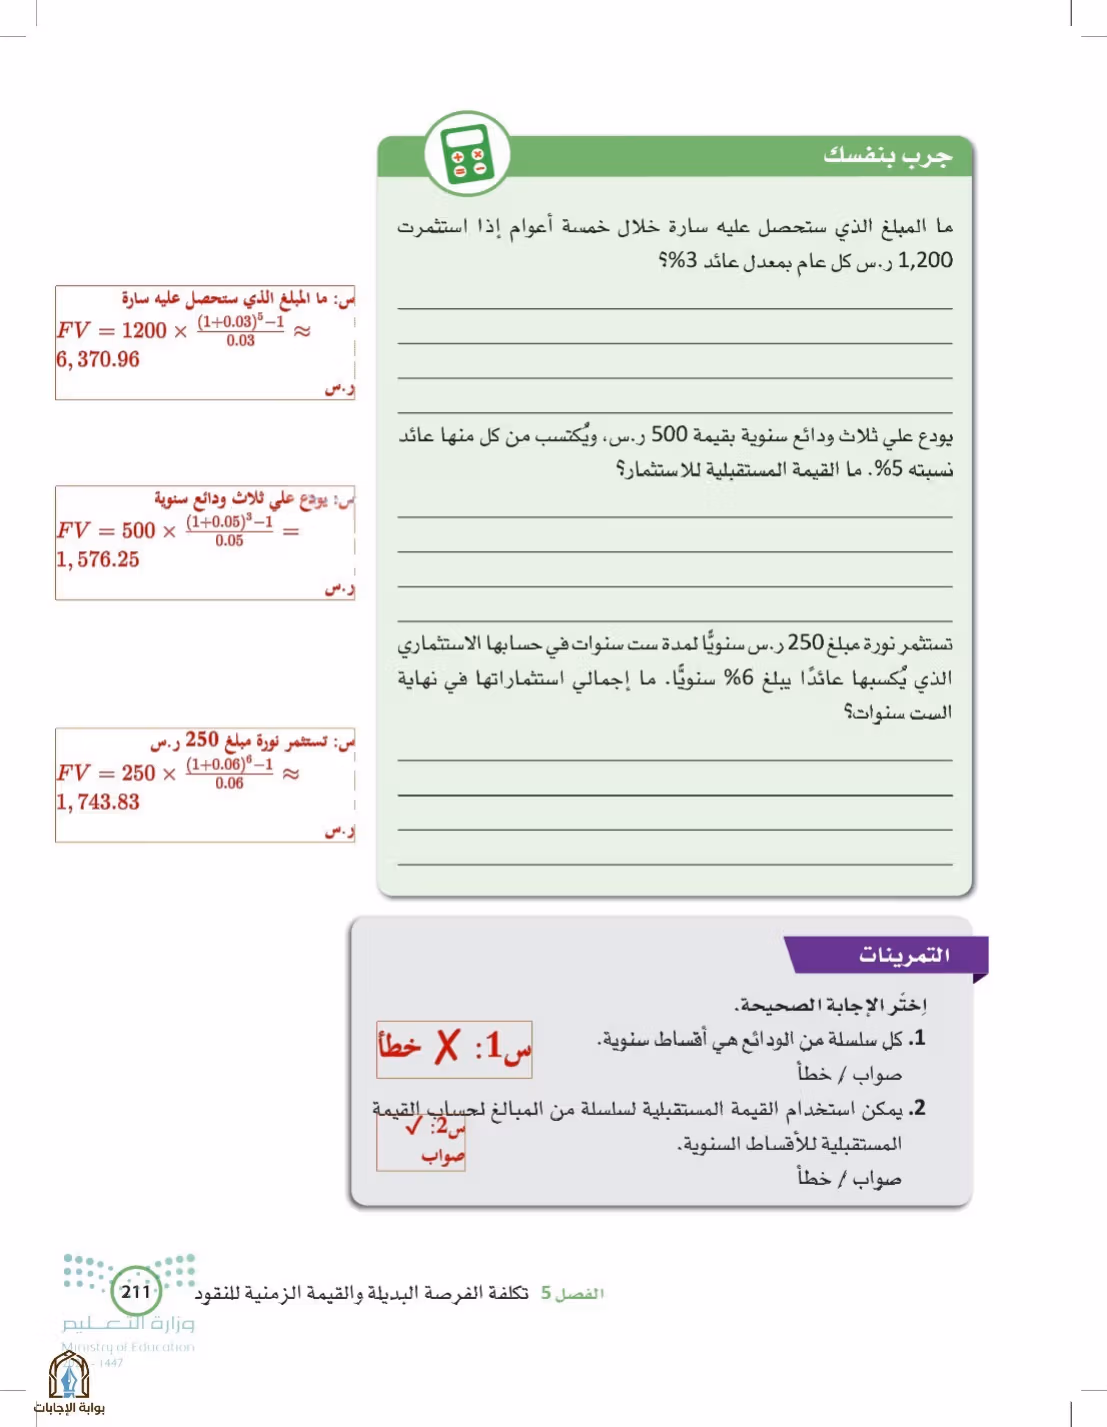 جرب بنفسك
ما المبلغ الذي ستحصل عليه سارة خلال خمسة أعوام إذا استثمرت
1,200 ر.س كل عام بمعدل عائد 3%؟
س: ما المبلغ الذي ستحصل عليه سارة
FV = 1200 × \frac{(1+0.03)^5−1}{0.03} ≈
6,370.96
ر.س
يودع علي ثلاث ودائع سنوية بقيمة 500 ر.س، ويُكتسب من كل منها عائد
نسبته 5%. ما القيمة المستقبلية للاستثمار؟
س: يودع علي ثلاث ودائع سنوية
FV = 500 × \frac{(1+0.05)^3−1}{0.05} =
1,576.25
ر.س
تستثمر نورة مبلغ 250 ر.س سنويًّا لمدة ست سنوات في حسابها الاستثماري
الذي يُكسبها عائدًا يبلغ 6% سنويًّا. ما إجمالي استثماراتها في نهاية
الست سنوات؟
س: تستثمر نورة مبلغ 250 ر.س
FV = 250 × \frac{(1+0.06)^6−1}{0.06} ≈
1,743.83
ر.س
التمرينات
اِختَر الإجابة الصحيحة.
1. كل سلسلة من الودائع هي أقساط سنوية.
س1: ✗ خطأ
صواب / خطأ
2. يمكن استخدام القيمة المستقبلية لسلسلة من المبالغ لحساب القيمة
المستقبلية للأقساط السنوية.
س2: ✓
صواب
صواب / خطأ
الفصل 5 تكلفة الفرصة البديلة والقيمة الزمنية للنقود
211
وزارة التعليم
Ministry of Education
- 1447
بوابة الإجابات